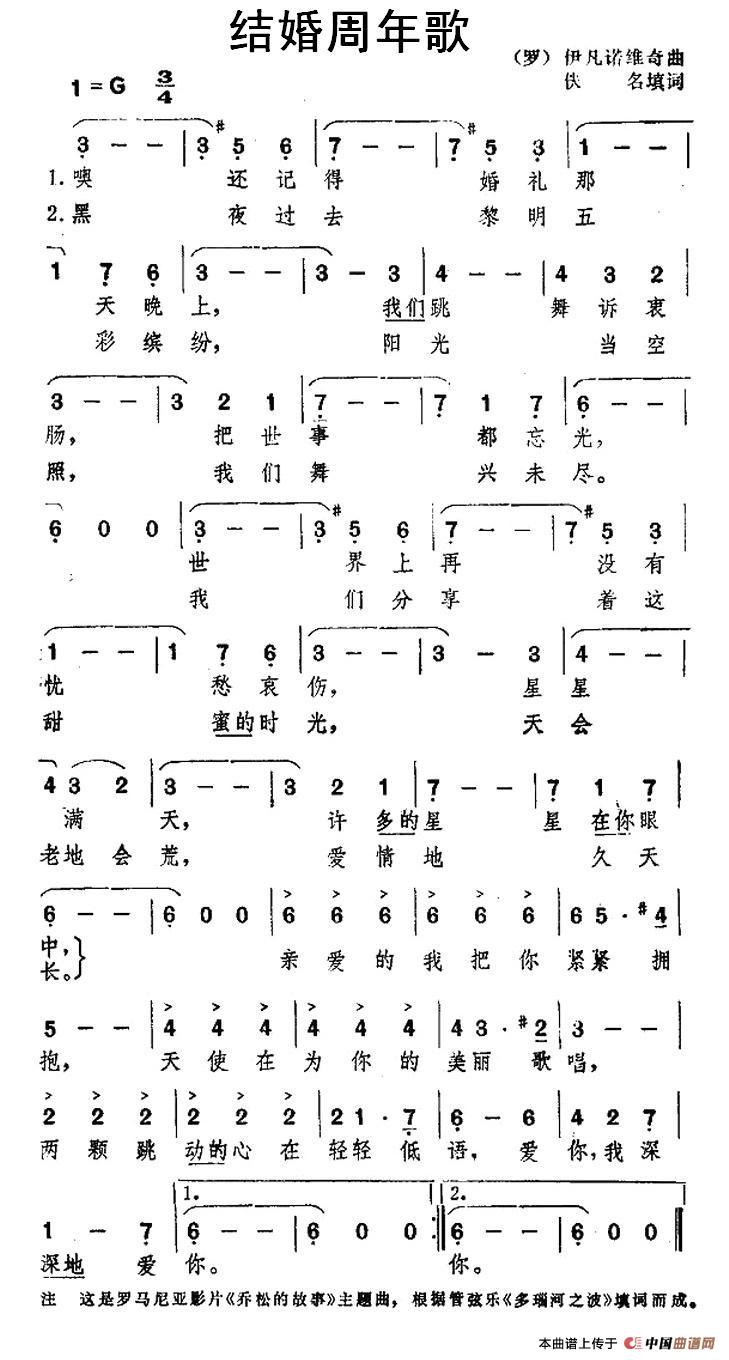 结婚周年歌
（罗）伊凡诺维奇曲
1=G 3/4 佚 名填词
3 - - | 3 #5 6 | 7 - - | 7 #5 3 | 1 - - |
1.噢 还记得 婚礼那
2.黑 夜过去 黎明五
1 7 6 | 3 - - | 3 - 3 | 4 - - | 4 3 2 |
天晚上， 我们跳 舞诉衷
彩缤纷， 阳光 当空
3 - - | 3 2 1 | 7 - - | 7 1 7 | 6 - - |
肠， 把世事 都忘光，
照， 我们舞 兴未尽。
6 0 0 | 3 - - | 3 #5 6 | 7 - - | 7 #5 3 |
世 界上再 没有
我 们分享 着这
1 - - | 1 7 6 | 3 - - | 3 - 3 | 4 - - |
忧 愁哀伤， 星星
甜 蜜的时光， 天会
4 3 2 | 3 - - | 3 2 1 | 7 - - | 7 1 7 |
满 天， 许多的星 星在你眼
老地会荒， 爱情地 久天
6 - - | 6 0 0 | 6 6 6 | 6 6 6 | 6 5 · #4 |
中，
长。} 亲爱的我把你紧紧拥
5 - - | 4 4 4 | 4 4 4 | 4 3 · #2 | 3 - - |
抱， 天使在为你的美丽歌唱，
2 2 2 | 2 2 2 | 2 1 · 7 | 6 - 6 | 4 2 7 |
两颗跳动的心在轻轻低语，爱你，我深
1. 2.
1 - 7 | 6 - - | 6 0 0 :‖ 6 - - | 6 0 0 ‖
深地 爱你。 你。
注 这是罗马尼亚影片《乔松的故事》主题曲，根据管弦乐《多瑙河之波》填词而成。
本曲谱上传于 中国曲谱网